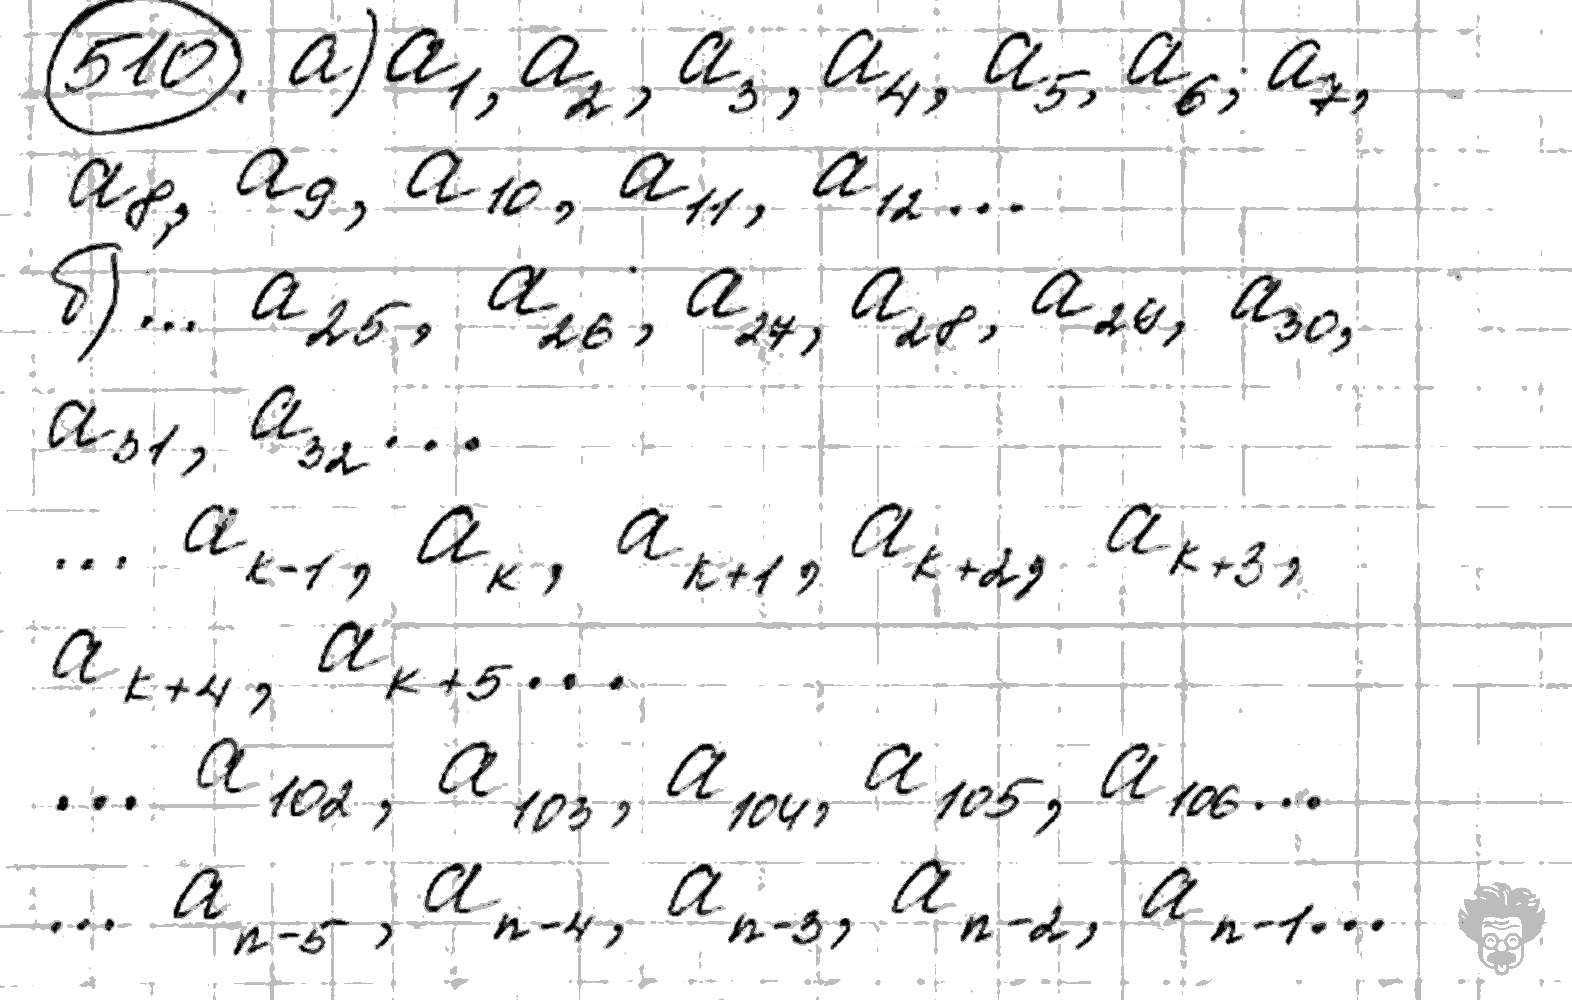 510. а) a₁, a₂, a₃, a₄, a₅, a₆, a₇,
a₈, a₉, a₁₀, a₁₁, a₁₂...
б) ... a₂₅, a₂₆, a₂₇, a₂₈, a₂₉, a₃₀,
a₃₁, a₃₂...
... aₖ₋₁, aₖ, aₖ₊₁, aₖ₊₂, aₖ₊₃,
aₖ₊₄, aₖ₊₅...
... a₁₀₂, a₁₀₃, a₁₀₄, a₁₀₅, a₁₀₆...
... aₙ₋₅, aₙ₋₄, aₙ₋₃, aₙ₋₂, aₙ₋₁...